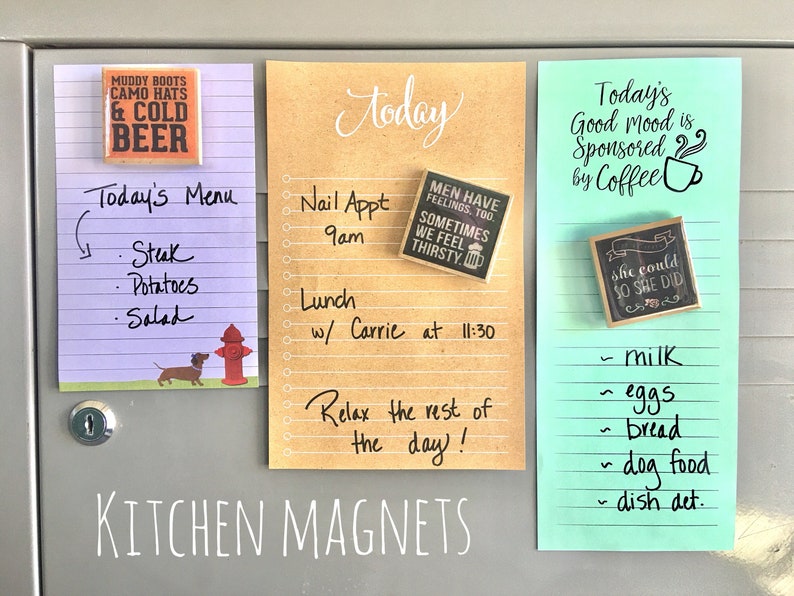 MUDDY BOOTS
CAMO HATS
& COLD
BEER
Today's Menu
· Steak
· Potatoes
· Salad
today
MEN HAVE
FEELINGS, TOO.
SOMETIMES
WE FEEL
THIRSTY.
Nail Appt
9am
Lunch
w/ Carrie at 11:30
Relax the rest of
the day!
Today's
Good Mood is
Sponsored
by Coffee
she could
SO SHE DID
~ milk
~ eggs
~ bread
~ dog food
~ dish det.
KITCHEN MAGNETS